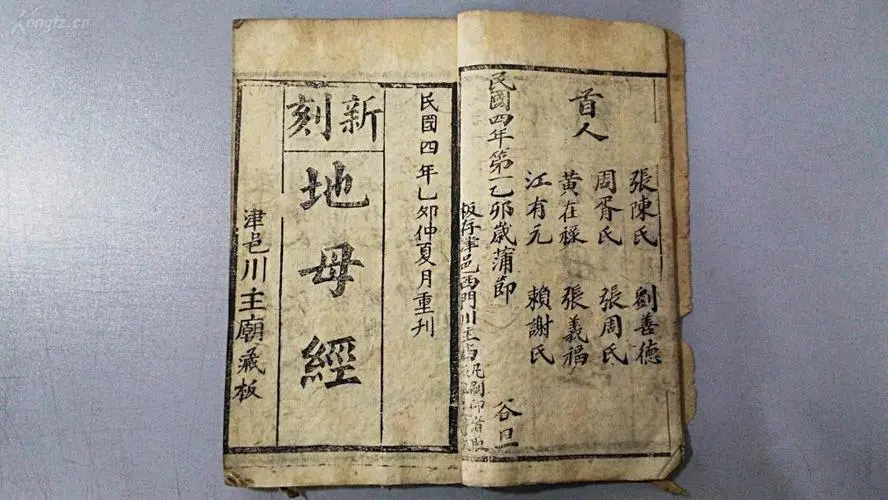 首人
張陳氏 劉善德
周胥氏 張周氏
黃在祿 張義福
江有元 賴謝氏
民國四年第一乙夘歲蒲節 谷旦
板存津邑西門川主廟凡刷印者
民國四年乙夘仲夏月重刊
新刻
地母經
津邑川主廟藏板